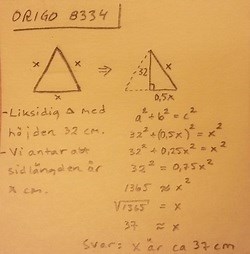 ORIGO B334
x x x
⇒
32 x 0,5x
- Liksidig △ med
höjden 32 cm.
- Vi antar att
sidlängden är
x cm.
a² + b² = c²
32² + (0,5x)² = x²
32² + 0,25x² = x²
32² = 0,75x²
1365 ≈ x²
√1365 ≈ x
37 ≈ x
Svar: x är ca 37 cm